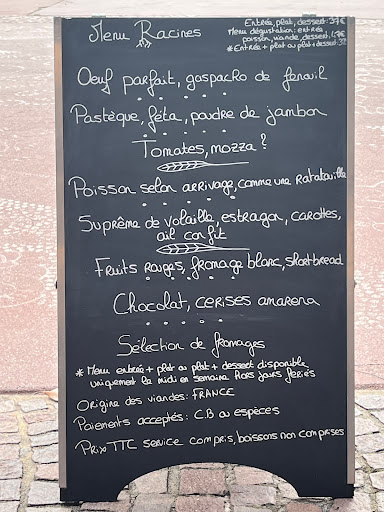 Menu Racines
Entrée, plat, dessert: 37€
Menu dégustation: entrée
poisson, viande, dessert, 47€
* Entrée + plat ou plat + dessert: 32
Oeuf parfait, gaspacho de fenouil
Pastèque, féta, poudre de jambon
Tomates, mozza?
Poisson selon arrivage, comme une Ratatouille
Suprême de volaille, estragon, carottes,
ail confit
Fruits rouges, fromage blanc, shortbread
Chocolat, cerises amarena
Sélection de fromages
* Menu entrée + plat ou plat + dessert disponible
uniquement le midi en semaine Hors jours fériés
Origine des viandes: FRANCE
Paiements acceptés: C.B ou espèces
Prix TTC service compris, boissons non comprises